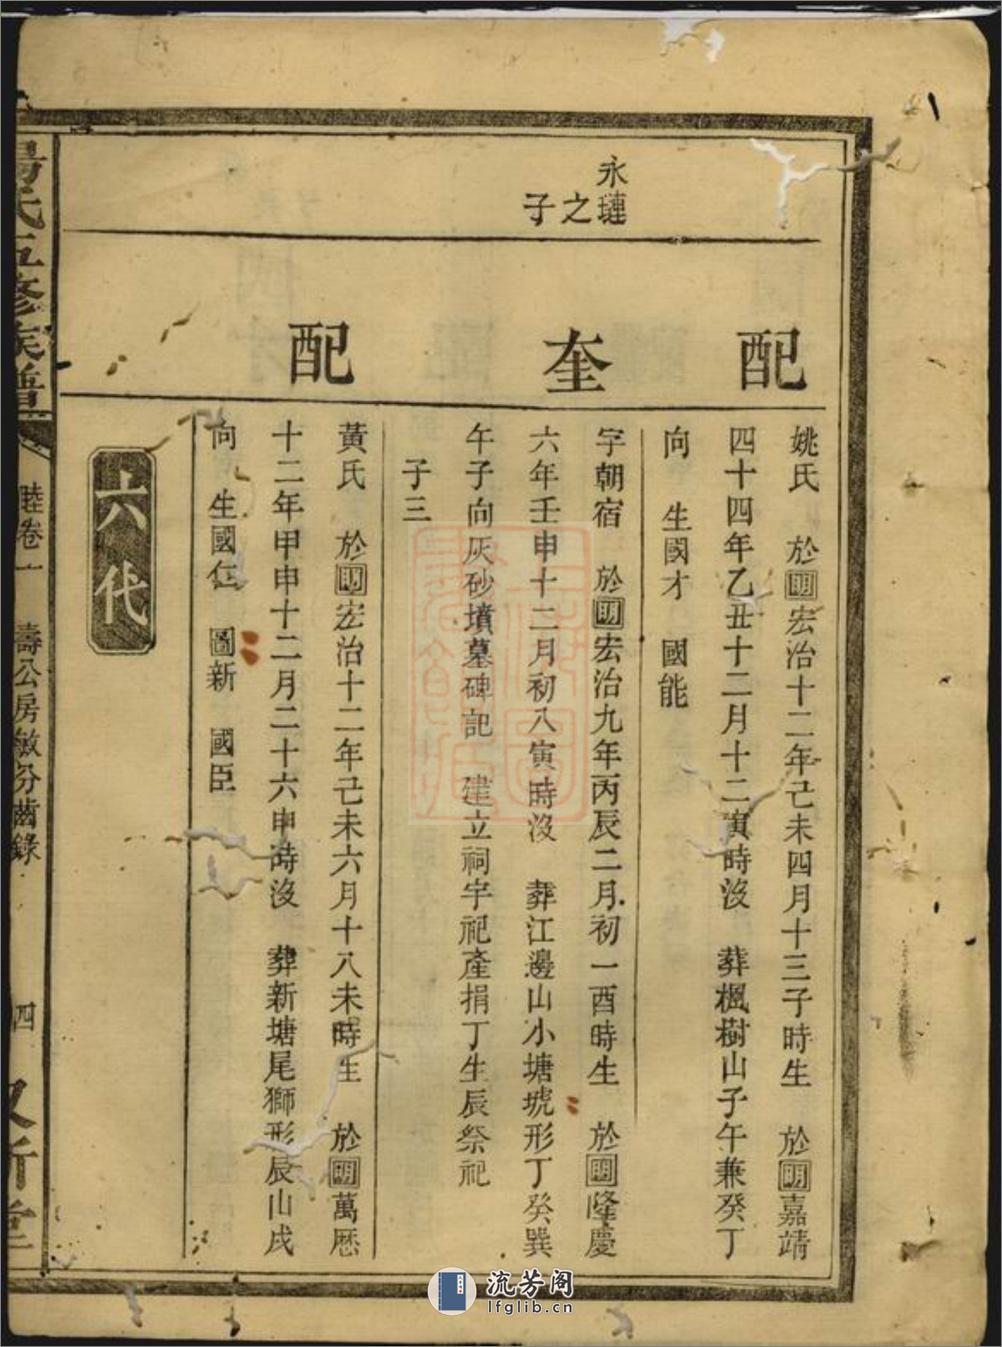 永璉之子
配
姚氏 於明宏治十二年己未四月十三子時生 於明嘉靖
四十四年乙丑十二月十二寅時沒 葬楓樹山子午兼癸丁
向 生國才 國能
奎
字朝宿 於明宏治九年丙辰二月初一酉時生 於明隆慶
六年壬申十二月初八寅時沒 葬江邊山小塘琥形丁癸巽
午子向灰砂墳墓碑記 建立祠宇祀產捐丁生辰祭祀
子三
配
黃氏 於明宏治十二年己未六月十八未時生 於明萬厯
十二年甲申十二月二十六申時沒 葬新塘尾獅形辰山戌
向 生國仁 圖新 國臣
六代
氏五修族譜
陸卷一 壽公房敏分齒錄
四
流芳阁
lfglib.cn